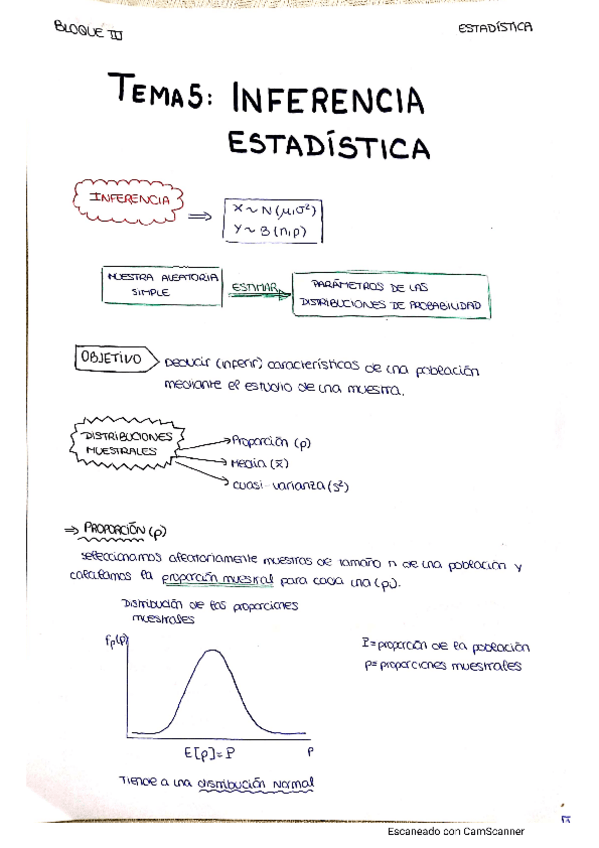 BLOQUE III
ESTADÍSTICA
TEMA 5: INFERENCIA
ESTADÍSTICA
INFERENCIA
⇒
X ~ N(μ,σ²)
Y ~ B(n,p)
MUESTRA ALEATORIA
SIMPLE
ESTIMAR
PARÁMETROS DE LAS
DISTRIBUCIONES DE PROBABILIDAD
OBJETIVO
Deducir (inferir) características de una población
mediante el estudio de una muestra.
DISTRIBUCIONES
MUESTRALES
Proporción (p)
Media (x̄)
Cuasi-varianza (s²)
⇒ PROPORCIÓN (p)
Seleccionamos aleatoriamente muestras de tamaño n de una población y
calculamos la proporción muestral para cada una (p).
Distribución de las proporciones
muestrales
fp(p)
P = proporción de la población
p = proporciones muestrales
E[p] = P
p
Tiende a una distribución Normal
Escaneado con CamScanner